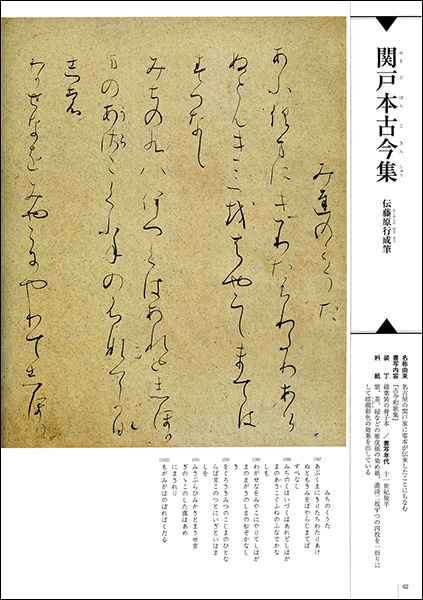 関戸本古今集
せきどぼんこきんしゅう
伝藤原行成筆
名称由来 名古屋の関戸家に零本が伝来したことにちなむ
書写内容 『古今和歌集』
装丁 綴葉装の冊子本 /書写年代 十一世紀後半
料紙 紫、茶、緑などの雁皮紙の染め紙、濃淡二枚ずつの四枚を一折りに
して繧繝彩色の効果を出している
みちのくうた
あふくまにきりたちわたりあけ
ぬともきみをはやらしまては
すへなし
みちのくはいつくはあれとしほか
まのあさこくふねのつなてかな
しも
わかせなをみやこにやりてしほか
みちのくうた
(1087)
あぶくまにきりたちわたりあけ
ぬともきみをばやらじまてば
すべなし
(1088)
みちのくはいづくはあれどしほが
まのあさこぐふねのつなでかな
しも
(1089)
わがせなをみやこにやりてしほが
まのまがきのしまの松ぞかなし
き
(1090)
をぐろさきみつのこじまのひとな
らば宮このつとにいざといはま
しを
(1091)
みさぶらひみかさとまうせ宮
ぎのゝこのした露はあめ
にまされり
(1092)
もがみがはのぼればくだる
62